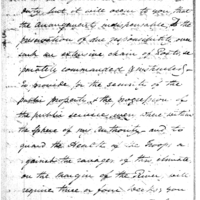 only, but it will seem to you that
the arrangements indispensable to the
preservation of due responsibility over
such an extensive chain of Posts, se-
parately commanded & instructed,
to provide for the security of the
public property, & the progression of
the public service, even there within
the sphere of my authority, and to
guard the Health of the Troops a-
gainst the ravages of this climate
on the margin of the River, will
require three or four weeks you